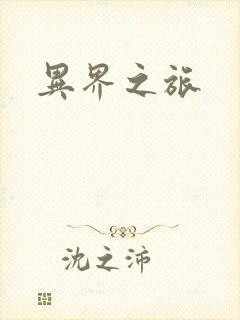 異界之旅
沈之沛